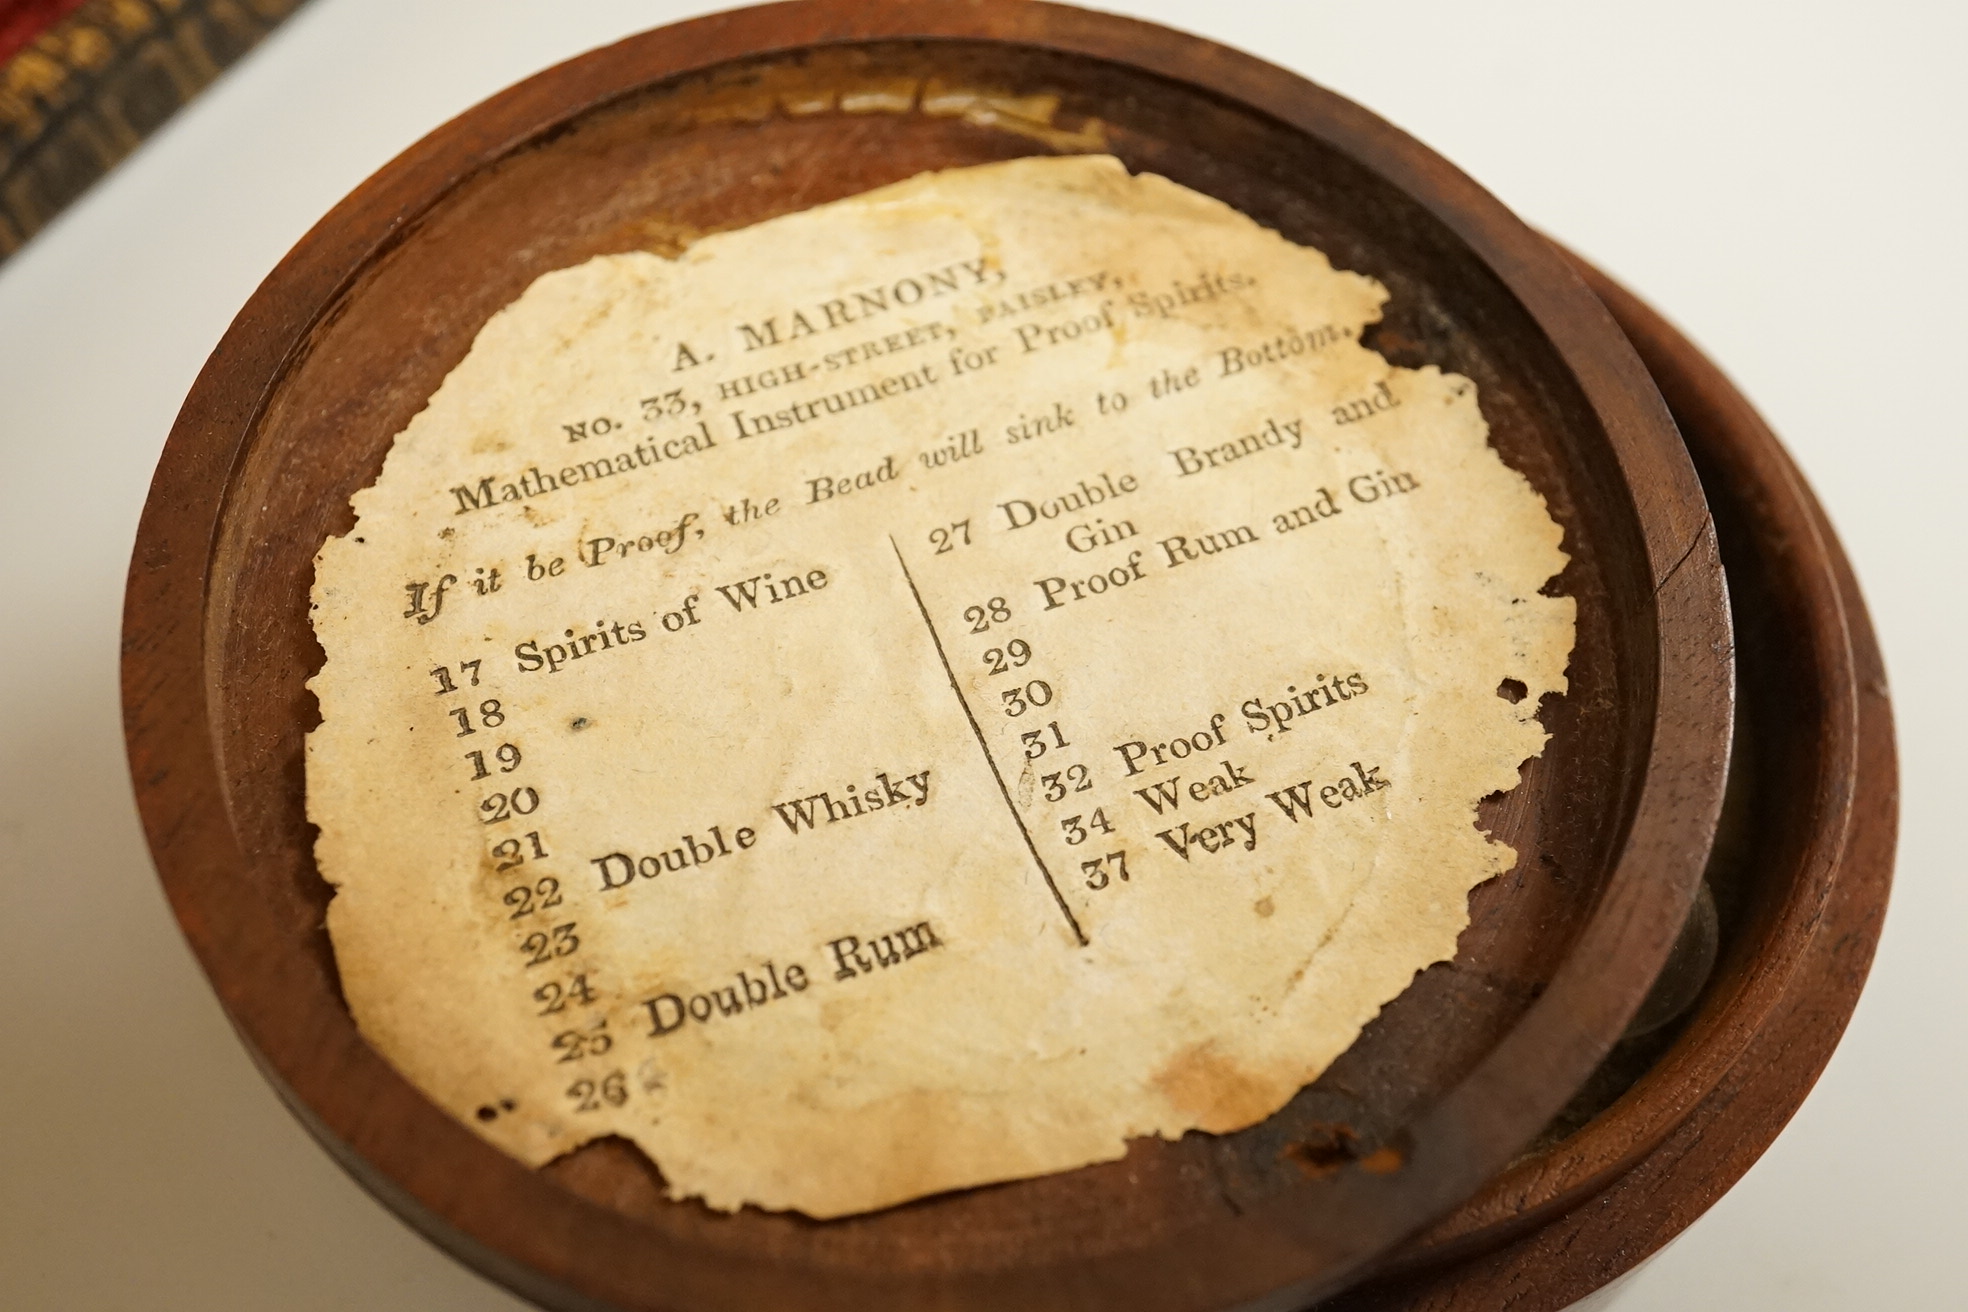 A. MARNONY,
NO. 33, HIGH-STREET, PAISLEY,
Mathematical Instrument for Proof Spirits.
If it be Proof, the Bead will sink to the Bottom.
17 Spirits of Wine
18
19
20
21
22 Double Whisky
23
24
25 Double Rum
26
27 Double Brandy and
Gin
28 Proof Rum and Gin
29
30
31
32 Proof Spirits
34 Weak
37 Very Weak